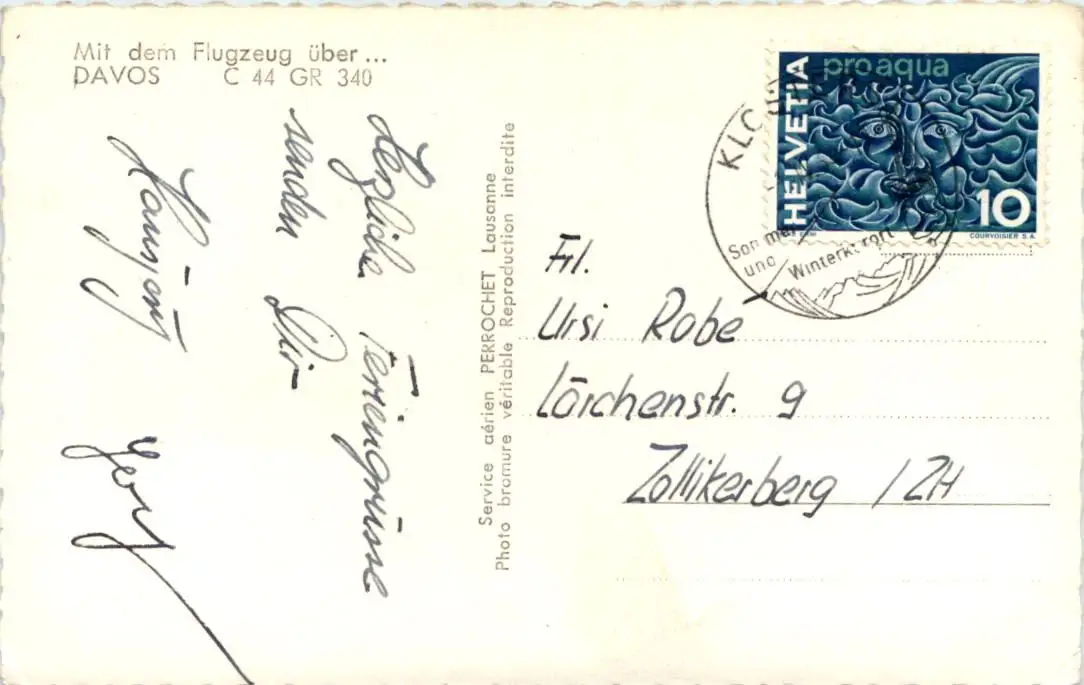 Mit dem Flugzeug über...
DAVOS C 44 GR 340
Herzliche Feriengrüsse
senden Dir
Hansjörg
Service aérien PERROCHET Lausanne
Photo bromure véritable Reproduction interdite
HELVETIA
pro aqua
10
COURVOISIER S.A.
KLO
Sommer
und Winterkurort
Frl.
Ursi Robé
Lärchenstr. 9
Zollikerberg / ZH